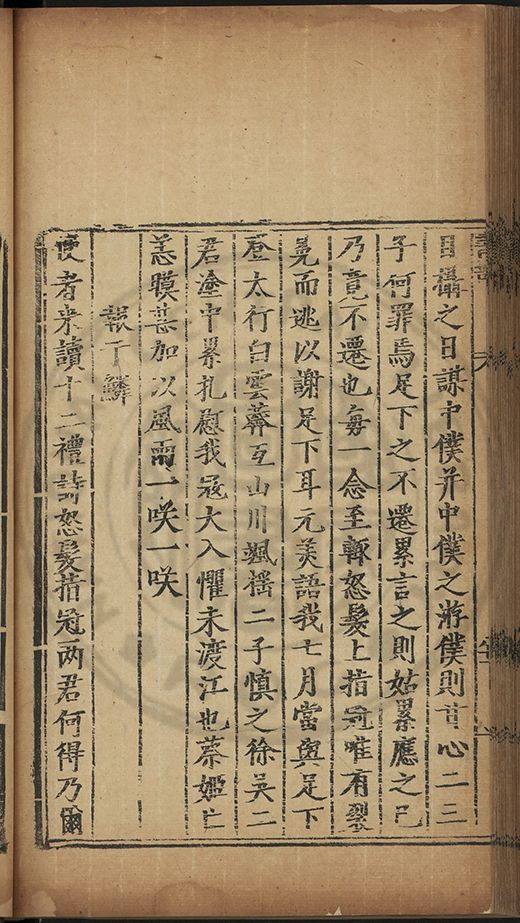 目懾之日謀中僕并中僕之游僕則甘心二三
子何罪焉足下之不遷累言之則姑累應之已
乃竟不遷也每一念至輙怒髮上指冠唯有裂
冕而逃以謝足下耳元美語我七月當與足下
登太行白雲莽互山川颯揺二子慎之徐吴二
君塗中累札慰我冦大入懼未渡江也蔡姬亡
恙暵甚加以風雨一咲一咲
報于鱗
使者来讀十二禮詩怒髮指冠两君何得乃爾